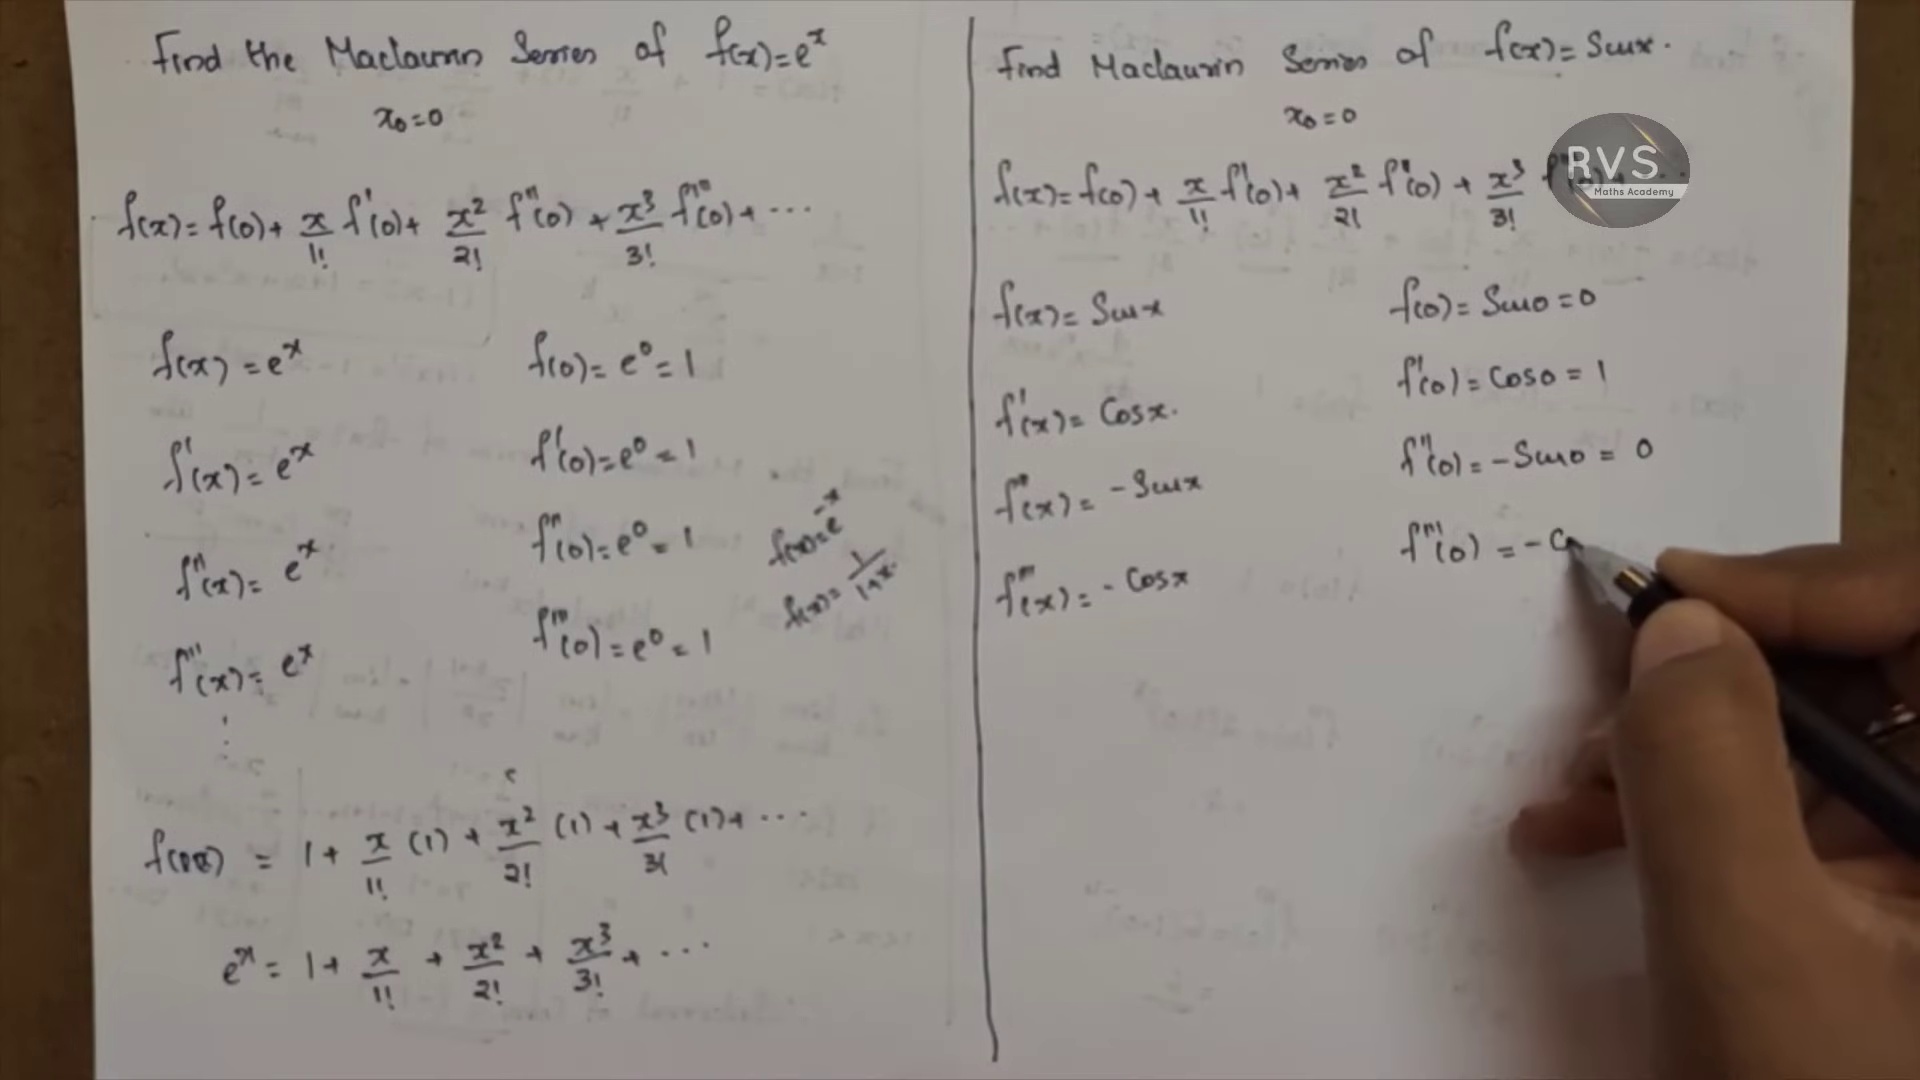 Find the Maclaurin Series of f(x)=e^x
x₀=0
f(x)=f(0)+ x/1! f'(0)+ x²/2! f''(0) + x³/3! f'''(0)+ ...
f(x) = e^x
f(0)= e⁰=1
f'(x)= e^x
f'(0)=e⁰=1
f''(x)= e^x
f''(0)=e⁰=1
f'''(x)= e^x
f'''(0)=e⁰=1
f(x)=e^-x
f(x)= 1/1+x.
= 1+ x/1! (1) + x²/2! (1)+ x³/3! (1)+ ...
e^x = 1+ x/1! + x²/2! + x³/3! + ...
Find Maclaurin Series of f(x)= Sinx.
x₀=0
f(x)=f(0)+ x/1! f'(0)+ x²/2! f''(0) + x³/3!
RVS
Maths Academy
f(x)= Sinx
f(0)= Sin0=0
f'(x)= Cosx.
f'(0)= Cos0 = 1
f''(x)= -Sinx
f''(0)= -Sin0 = 0
f'''(x)= -Cosx
f'''(0) = - C